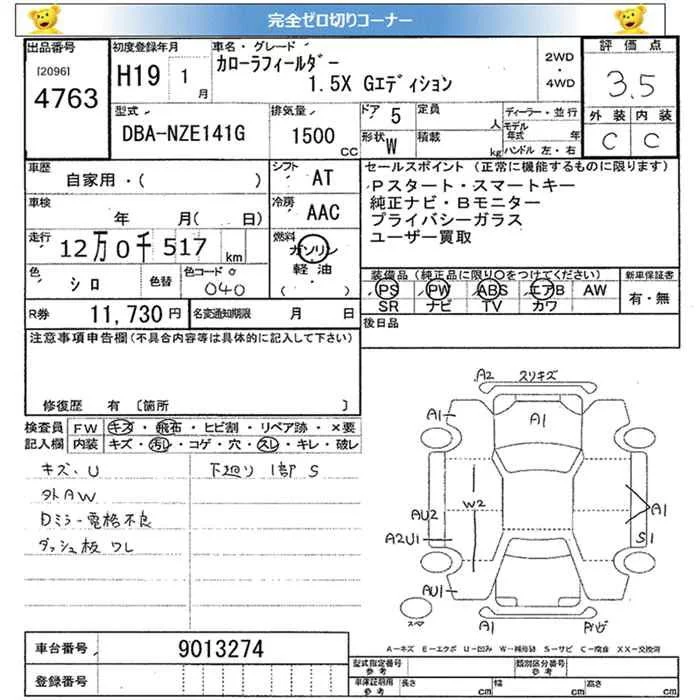 完全ゼロ切りコーナー
出品番号 初度登録年月 車名・グレード 評価点
[2096] 4763 H19 1月 カローラフィールダー 2WD・4WD 3.5
1.5X Gエディション
型式 排気量 ドア 5 定員 人 ディーラー・並行 外装 内装
DBA-NZE141G 1500 CC 形状 W 積載 kg モデル年式 年 C C
ハンドル 左・右
車歴 シフト セールスポイント (正常に機能するものに限ります)
自家用・( ) AT Pスタート・スマートキー
車検 冷房 純正ナビ・Bモニター
年 月( 日) AAC プライバシーガラス
走行 燃料 ユーザー買取
12万0千517 km ガソリン
色 色替 色コード 軽油 装備品(純正品に限り○をつけてください) 新車保証書
シロ 040 ( ) PS PW ABS エアB AW 有・無
R券 11,730円 名変通知期限 月 日 SR ナビ TV カワ
注意事項申告欄(不具合内容等は具体的に記入して下さい) 後日品
修復歴 有 〔箇所 〕
検査員 FW キズ・飛石・ヒビ割・リペア跡・×要
記入欄 内装 キズ・汚レ・コゲ・穴・スレ・キレ・破レ
キズ、U 下廻り 1部 S
外AW
Dミラー電格不良
ダッシュ板 ワレ
A2 スリキズ
A1 A1
W2
AU2 A1
A2U1 S1
AU1
A1
A-キズ E-エクボ U-凹み W-補修跡 S-サビ C-腐食 XX-交換済
車台番号 9013274 型式指定番号 参考 類別区分番号 参考
登録番号 車庫証明用 参考 長さ cm 幅 cm 高さ cm